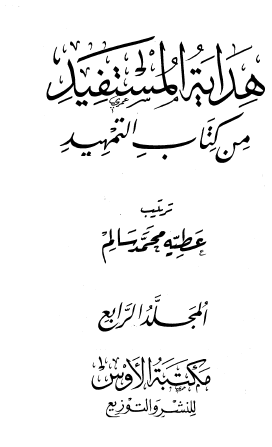 هِدَايَةُ الْمُسْتَفِيدِ
مِنْ كِتَابِ التَّمْهِيدِ
ترتيب
عَطِيَّه مُحَمَّد سَالِمْ
المُجَلَّدُ الرَّابِع
مَكْتَبَةُ الأَوْسِ
للنشر والتوزيع